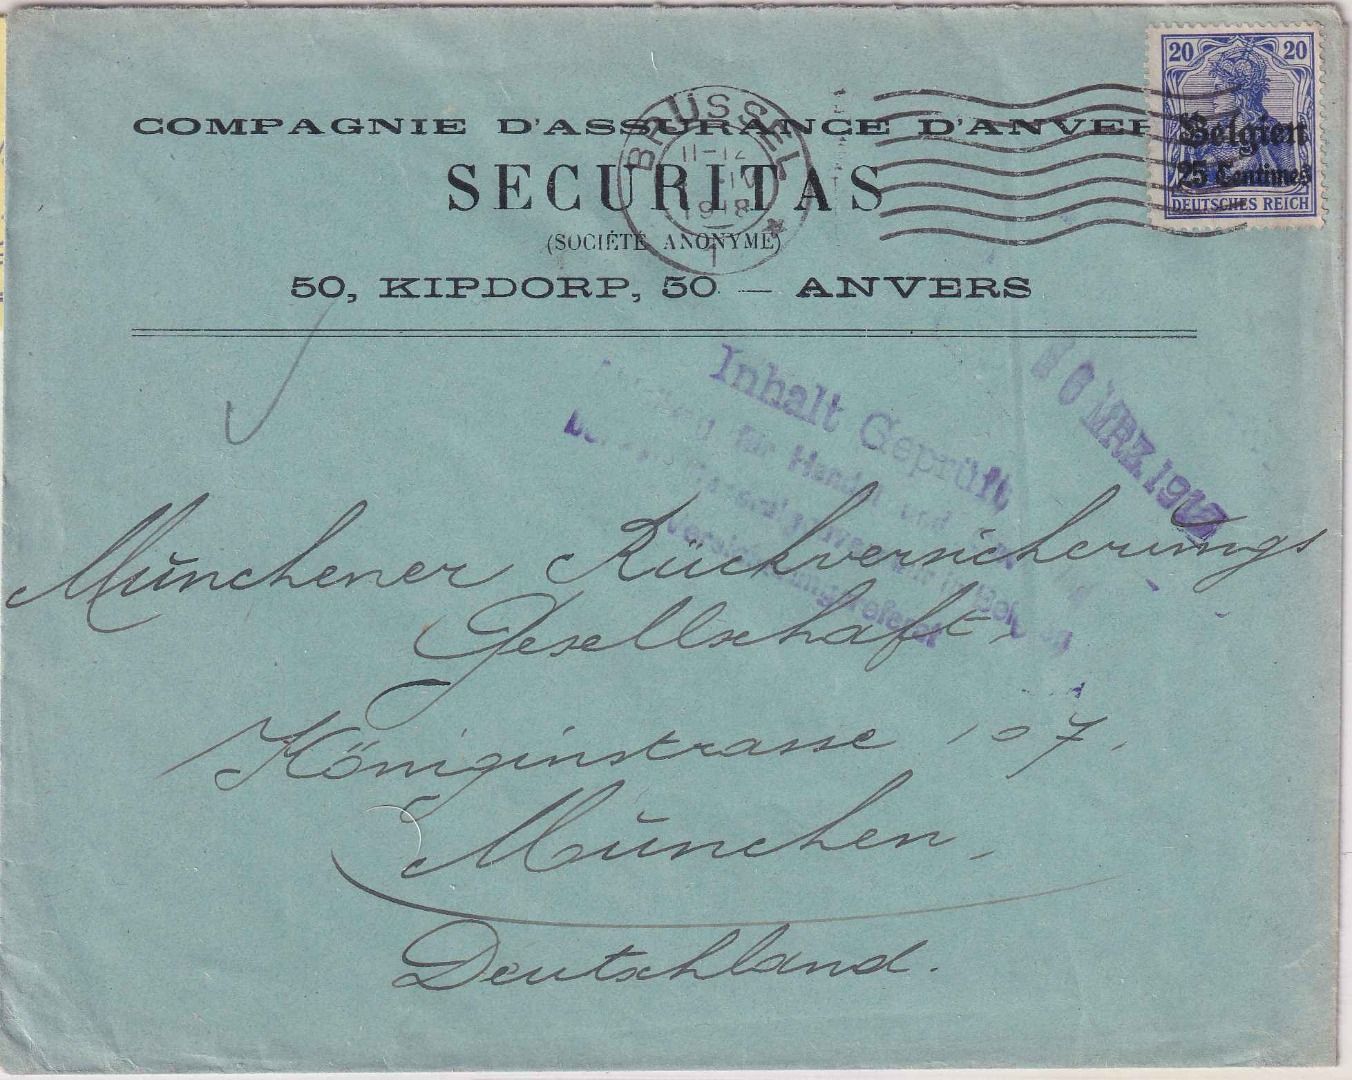 COMPAGNIE D'ASSURANCE D'ANVER
SECURITAS
(SOCIÉTÉ ANONYME)
50, KIPDORP, 50 — ANVERS
BRÜSSEL
11-12
IV
1918
1
20 20
Belgien
25 Centimes
DEUTSCHES REICH
Inhalt Geprüft
für Handel und
Versicherungsreferat
MRZ. 191
Münchener Rückversicherungs
Gesellschaft,
Königinstrasse 107,
München,
Deutschland.